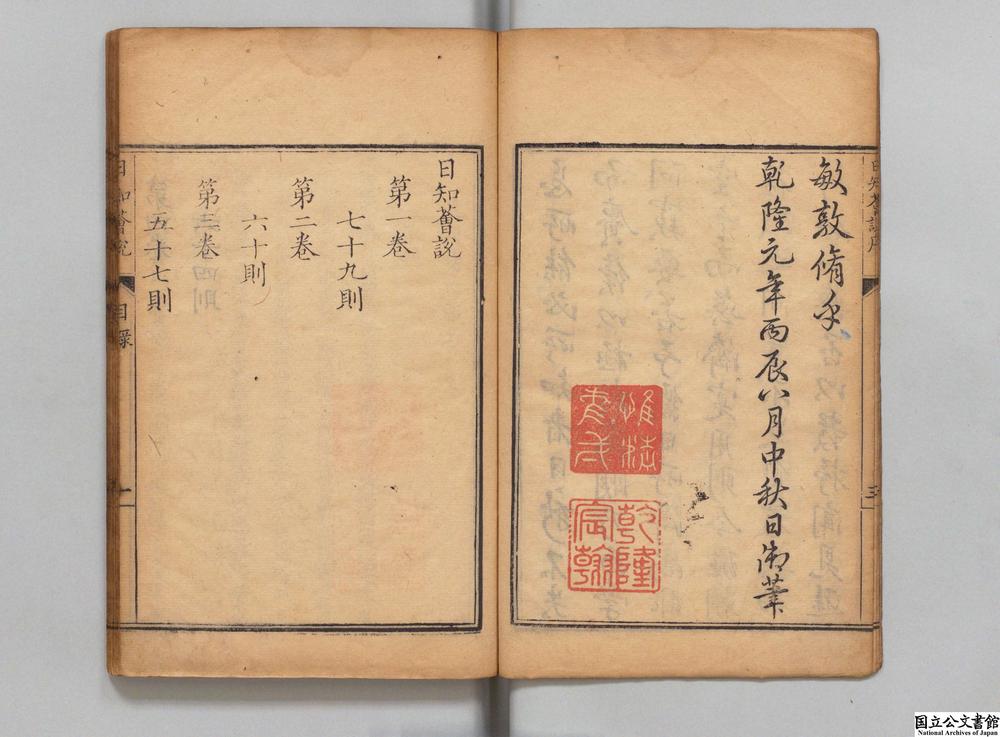 敏敦脩乎
乾隆元年丙辰八月中秋日御筆
惟精
惟一
乾隆
宸翰
日知薈說
第一卷
七十九則
第二卷
六十則
第三卷
五十七則
日知薈說
目錄
一
国立公文書館
National Archives of Japan